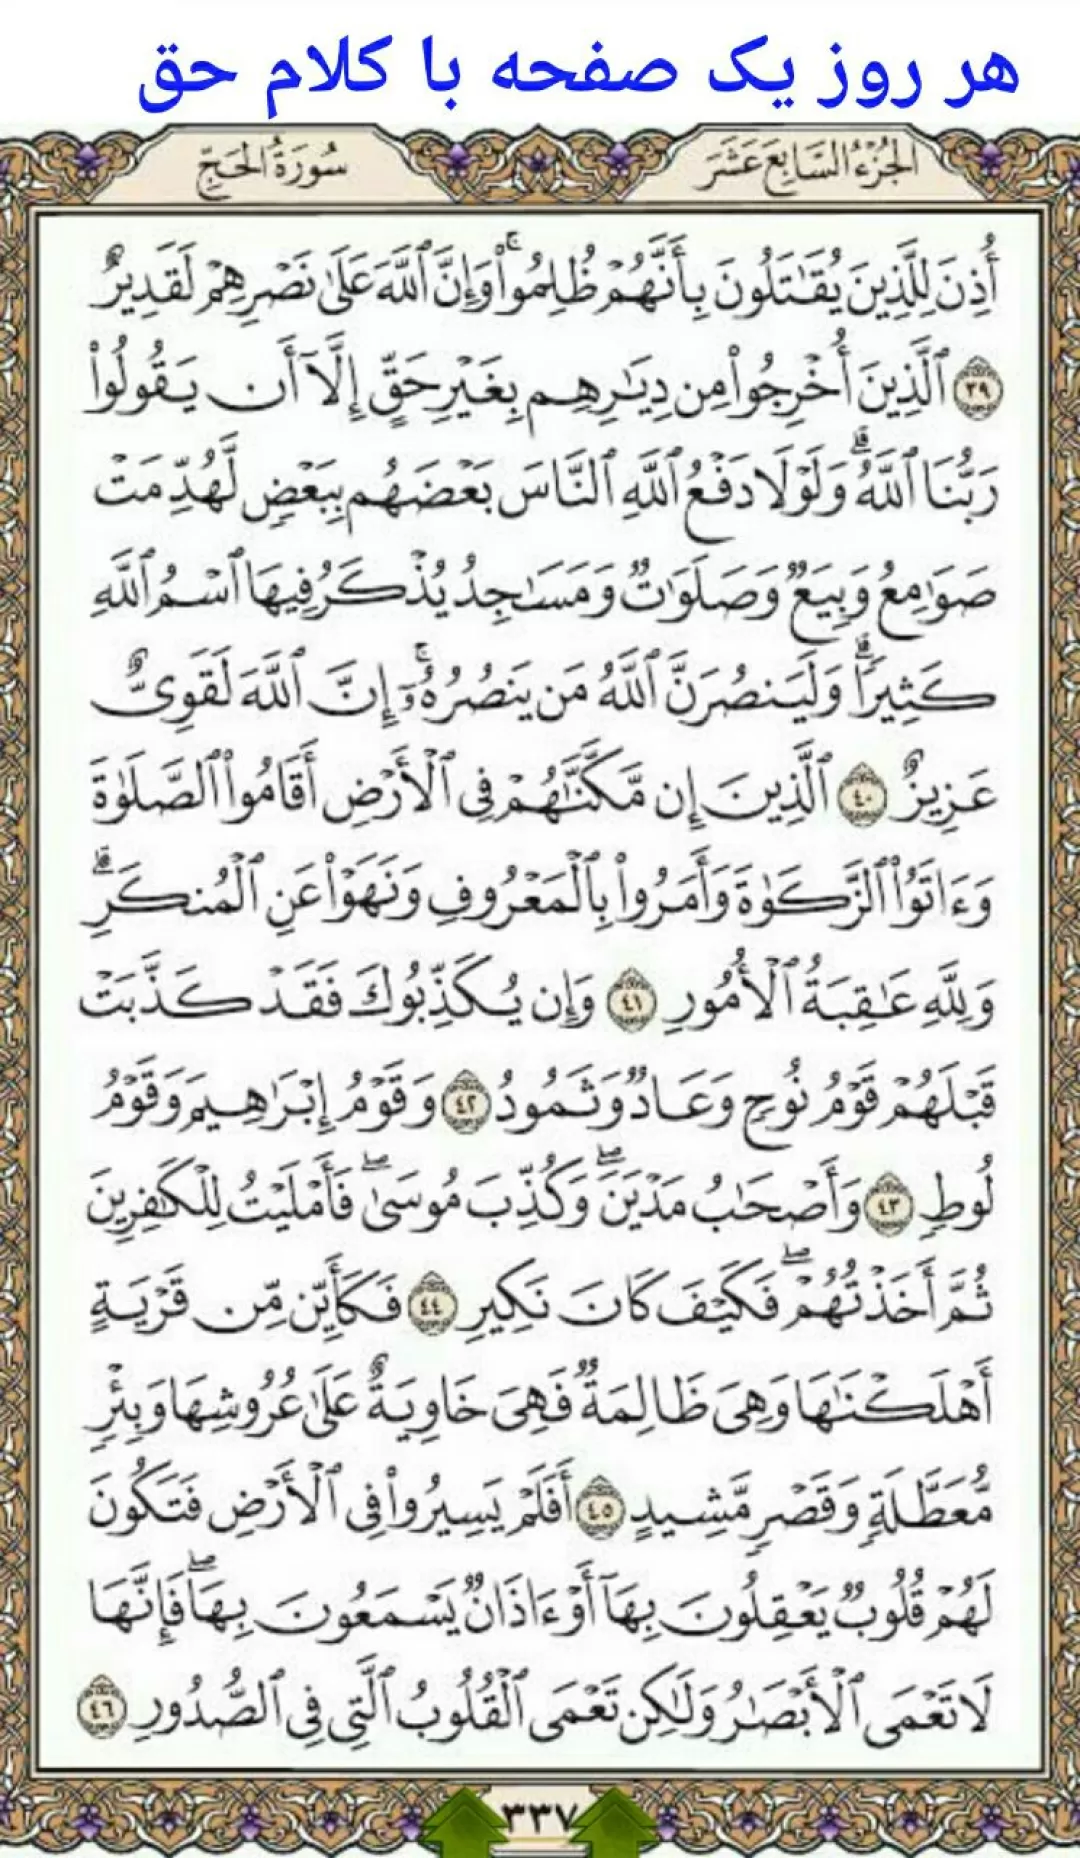 هر روز یک صفحه با کلام حق
الجُزْءُ السَّابِعَ عَشَرَ
سُورَةُ الحَجِّ
أُذِنَ لِلَّذِينَ يُقَٰتَلُونَ بِأَنَّهُمْ ظُلِمُوا۟ۚ وَإِنَّ ٱللَّهَ عَلَىٰ نَصْرِهِمْ لَقَدِيرٌ
﴿٣٩﴾ ٱلَّذِينَ أُخْرِجُوا۟ مِن دِيَٰرِهِم بِغَيْرِ حَقٍّ إِلَّآ أَن يَقُولُوا۟
رَبُّنَا ٱللَّهُۗ وَلَوْلَا دَفْعُ ٱللَّهِ ٱلنَّاسَ بَعْضَهُم بِبَعْضٍ لَّهُدِّمَتْ
صَوَٰمِعُ وَبِيَعٌ وَصَلَوَٰتٌ وَمَسَٰجِدُ يُذْكَرُ فِيهَا ٱسْمُ ٱللَّهِ
كَثِيرًاۗ وَلَيَنصُرَنَّ ٱللَّهُ مَن يَنصُرُهُۥٓۚ إِنَّ ٱللَّهَ لَقَوِىٌّ
عَزِيزٌ ﴿٤٠﴾ ٱلَّذِينَ إِن مَّكَّنَّٰهُمْ فِى ٱلْأَرْضِ أَقَامُوا۟ ٱلصَّلَوٰةَ
وَءَاتَوُا۟ ٱلزَّكَوٰةَ وَأَمَرُوا۟ بِٱلْمَعْرُوفِ وَنَهَوْا۟ عَنِ ٱلْمُنكَرِۗ
وَلِلَّهِ عَٰقِبَةُ ٱلْأُمُورِ ﴿٤١﴾ وَإِن يُكَذِّبُوكَ فَقَدْ كَذَّبَتْ
قَبْلَهُمْ قَوْمُ نُوحٍ وَعَادٌ وَثَمُودُ ﴿٤٢﴾ وَقَوْمُ إِبْرَٰهِيمَ وَقَوْمُ
لُوطٍ ﴿٤٣﴾ وَأَصْحَٰبُ مَدْيَنَۖ وَكُذِّبَ مُوسَىٰۖ فَأَمْلَيْتُ لِلْكَٰفِرِينَ
ثُمَّ أَخَذْتُهُمْۖ فَكَيْفَ كَانَ نَكِيرِ ﴿٤٤﴾ فَكَأَيِّن مِّن قَرْيَةٍ
أَهْلَكْنَٰهَا وَهِىَ ظَالِمَةٌ فَهِىَ خَاوِيَةٌ عَلَىٰ عُرُوشِهَا وَبِئْرٍ
مُّعَطَّلَةٍ وَقَصْرٍ مَّشِيدٍ ﴿٤٥﴾ أَفَلَمْ يَسِيرُوا۟ فِى ٱلْأَرْضِ فَتَكُونَ
لَهُمْ قُلُوبٌ يَعْقِلُونَ بِهَآ أَوْ ءَاذَانٌ يَسْمَعُونَ بِهَاۖ فَإِنَّهَا
لَا تَعْمَى ٱلْأَبْصَٰرُ وَلَٰكِن تَعْمَى ٱلْقُلُوبُ ٱلَّتِى فِى ٱلصُّدُورِ ﴿٤٦﴾
٣٣٧